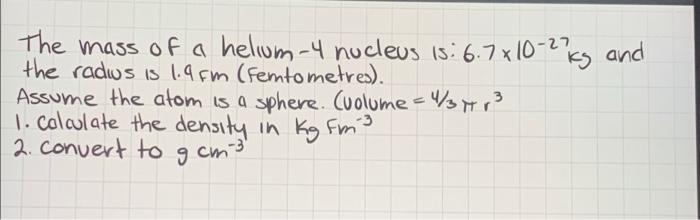 The mass of a helium-4 nucleus is: 6.7 x 10⁻²⁷ kg and
the radius is 1.9 fm (femtometres).
Assume the atom is a sphere. (volume = 4/3 π r³
1. Calculate the density in Kg Fm⁻³
2. convert to g cm⁻³